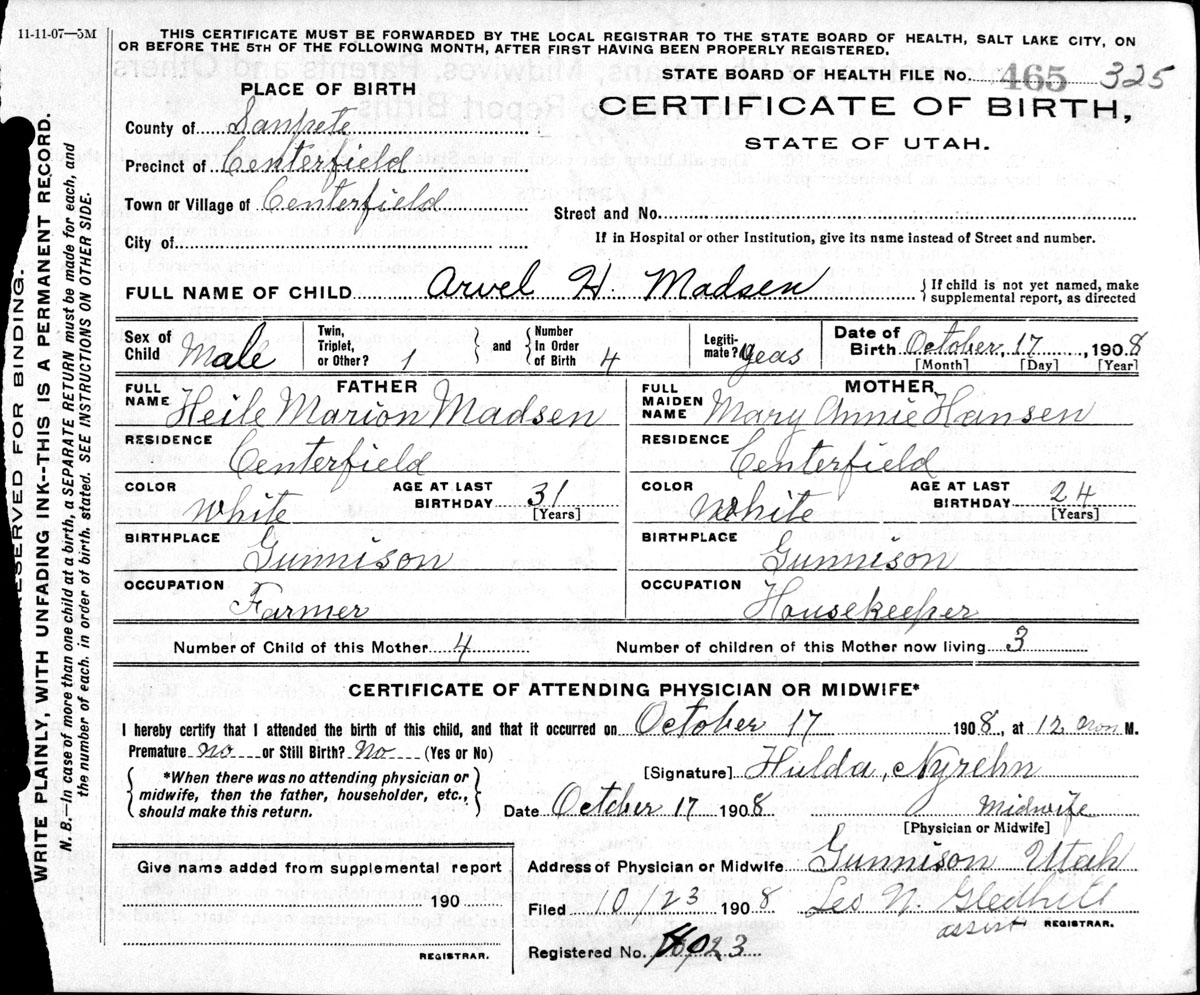 11-11-07—5M
THIS CERTIFICATE MUST BE FORWARDED BY THE LOCAL REGISTRAR TO THE STATE BOARD OF HEALTH, SALT LAKE CITY, ON
OR BEFORE THE 5TH OF THE FOLLOWING MONTH, AFTER FIRST HAVING BEEN PROPERLY REGISTERED.
STATE BOARD OF HEALTH FILE No. 465 325
PLACE OF BIRTH
CERTIFICATE OF BIRTH,
STATE OF UTAH.
County of Sanpete
Precinct of Centerfield
Town or Village of Centerfield
Street and No.
City of
If in Hospital or other Institution, give its name instead of Street and number.
FULL NAME OF CHILD Arvel H. Madsen { If child is not yet named, make
supplemental report, as directed
Sex of
Child Male
Twin,
Triplet,
or Other? 1 } and { Number
In Order
of Birth 4
Legiti-
mate? yeas
Date of
Birth October, 17, 1908
[Month] [Day] [Year]
FATHER
FULL
NAME Heile Marion Madsen
RESIDENCE
Centerfield
COLOR
White
AGE AT LAST
BIRTHDAY 31
[Years]
BIRTHPLACE
Gunnison
OCCUPATION
Farmer
MOTHER
FULL
MAIDEN
NAME Mary Annie Hansen
RESIDENCE
Centerfield
COLOR
White
AGE AT LAST
BIRTHDAY 24
[Years]
BIRTHPLACE
Gunnison
OCCUPATION
Housekeeper
Number of Child of this Mother 4
Number of children of this Mother now living 3
CERTIFICATE OF ATTENDING PHYSICIAN OR MIDWIFE*
I hereby certify that I attended the birth of this child, and that it occurred on October 17 1908, at 12 non M.
Premature no or Still Birth? No (Yes or No)
{ *When there was no attending physician or
midwife, then the father, householder, etc.,
should make this return. }
[Signature] Hulda, Nyrehn
Date October 17 1908
Midwife
[Physician or Midwife]
Give name added from supplemental report
190
REGISTRAR.
Address of Physician or Midwife Gunnison Utah
Filed 10/23 1908 Leo N. Gledhill
assist REGISTRAR.
Registered No. 23
RESERVED FOR BINDING.
WRITE PLAINLY, WITH UNFADING INK--THIS IS A PERMANENT RECORD.
N. B.—In case of more than one child at a birth, a SEPARATE RETURN must be made for each, and
the number of each, in order of birth, stated. SEE INSTRUCTIONS ON OTHER SIDE.